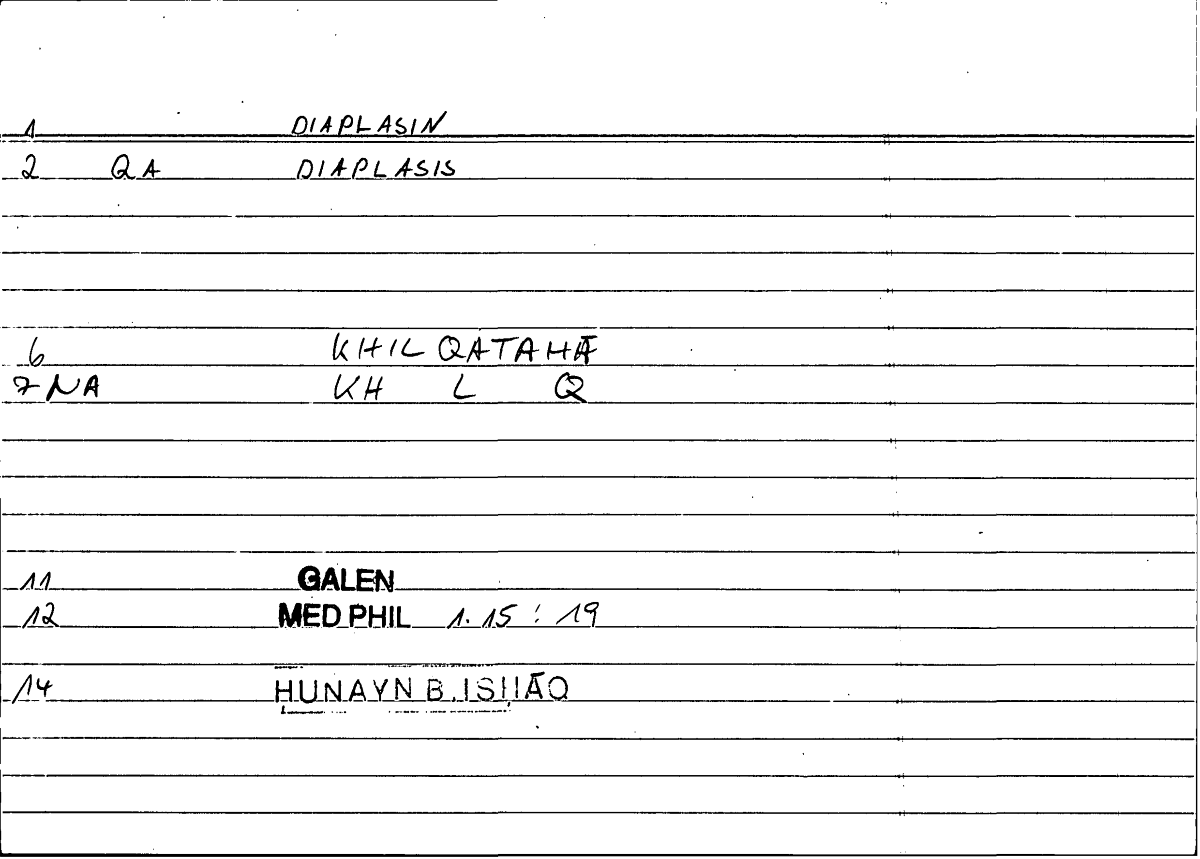 1 DIAPLASIN
2 QA DIAPLASIS
6 KHIL QATAHĀ
7 NA KH L Q
11 GALEN
12 MED PHIL 1.15 : 19
14 ḤUNAYN B. ISḤĀQ